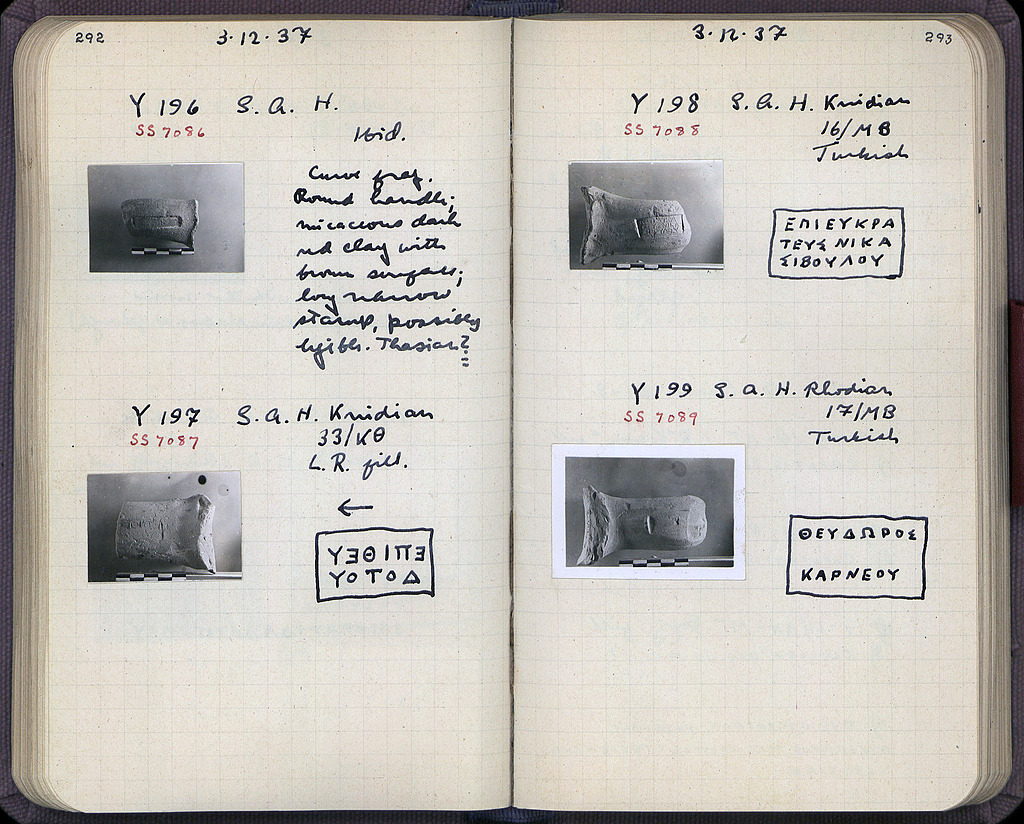 292
3·12·37
Y 196 S. A. H.
SS 7086
Ibid.
Curve frag.
Round handle;
micaceous dark
red clay with
brown surface;
long narrow
stamp, possibly
legible. Thasian?
Y 197 S. A. H. Knidian
SS 7087
33/ΚΘ
L. R. fill.
←
ΥƎΘΙΠƎ
ΥΟΤΟΔ
3·12·37
293
Y 198 S. A. H. Knidian
SS 7088
16/ΜΒ
Turkish
ΕΠΙΕΥΚΡΑ
ΤΕΥΣ ΝΙΚΑ
ΣΙΒΟΥΛΟΥ
Y 199 S. A. H. Rhodian
SS 7089
17/ΜΒ
Turkish
ΘΕΥΔΩΡΟΣ
ΚΑΡΝΕΟΥ